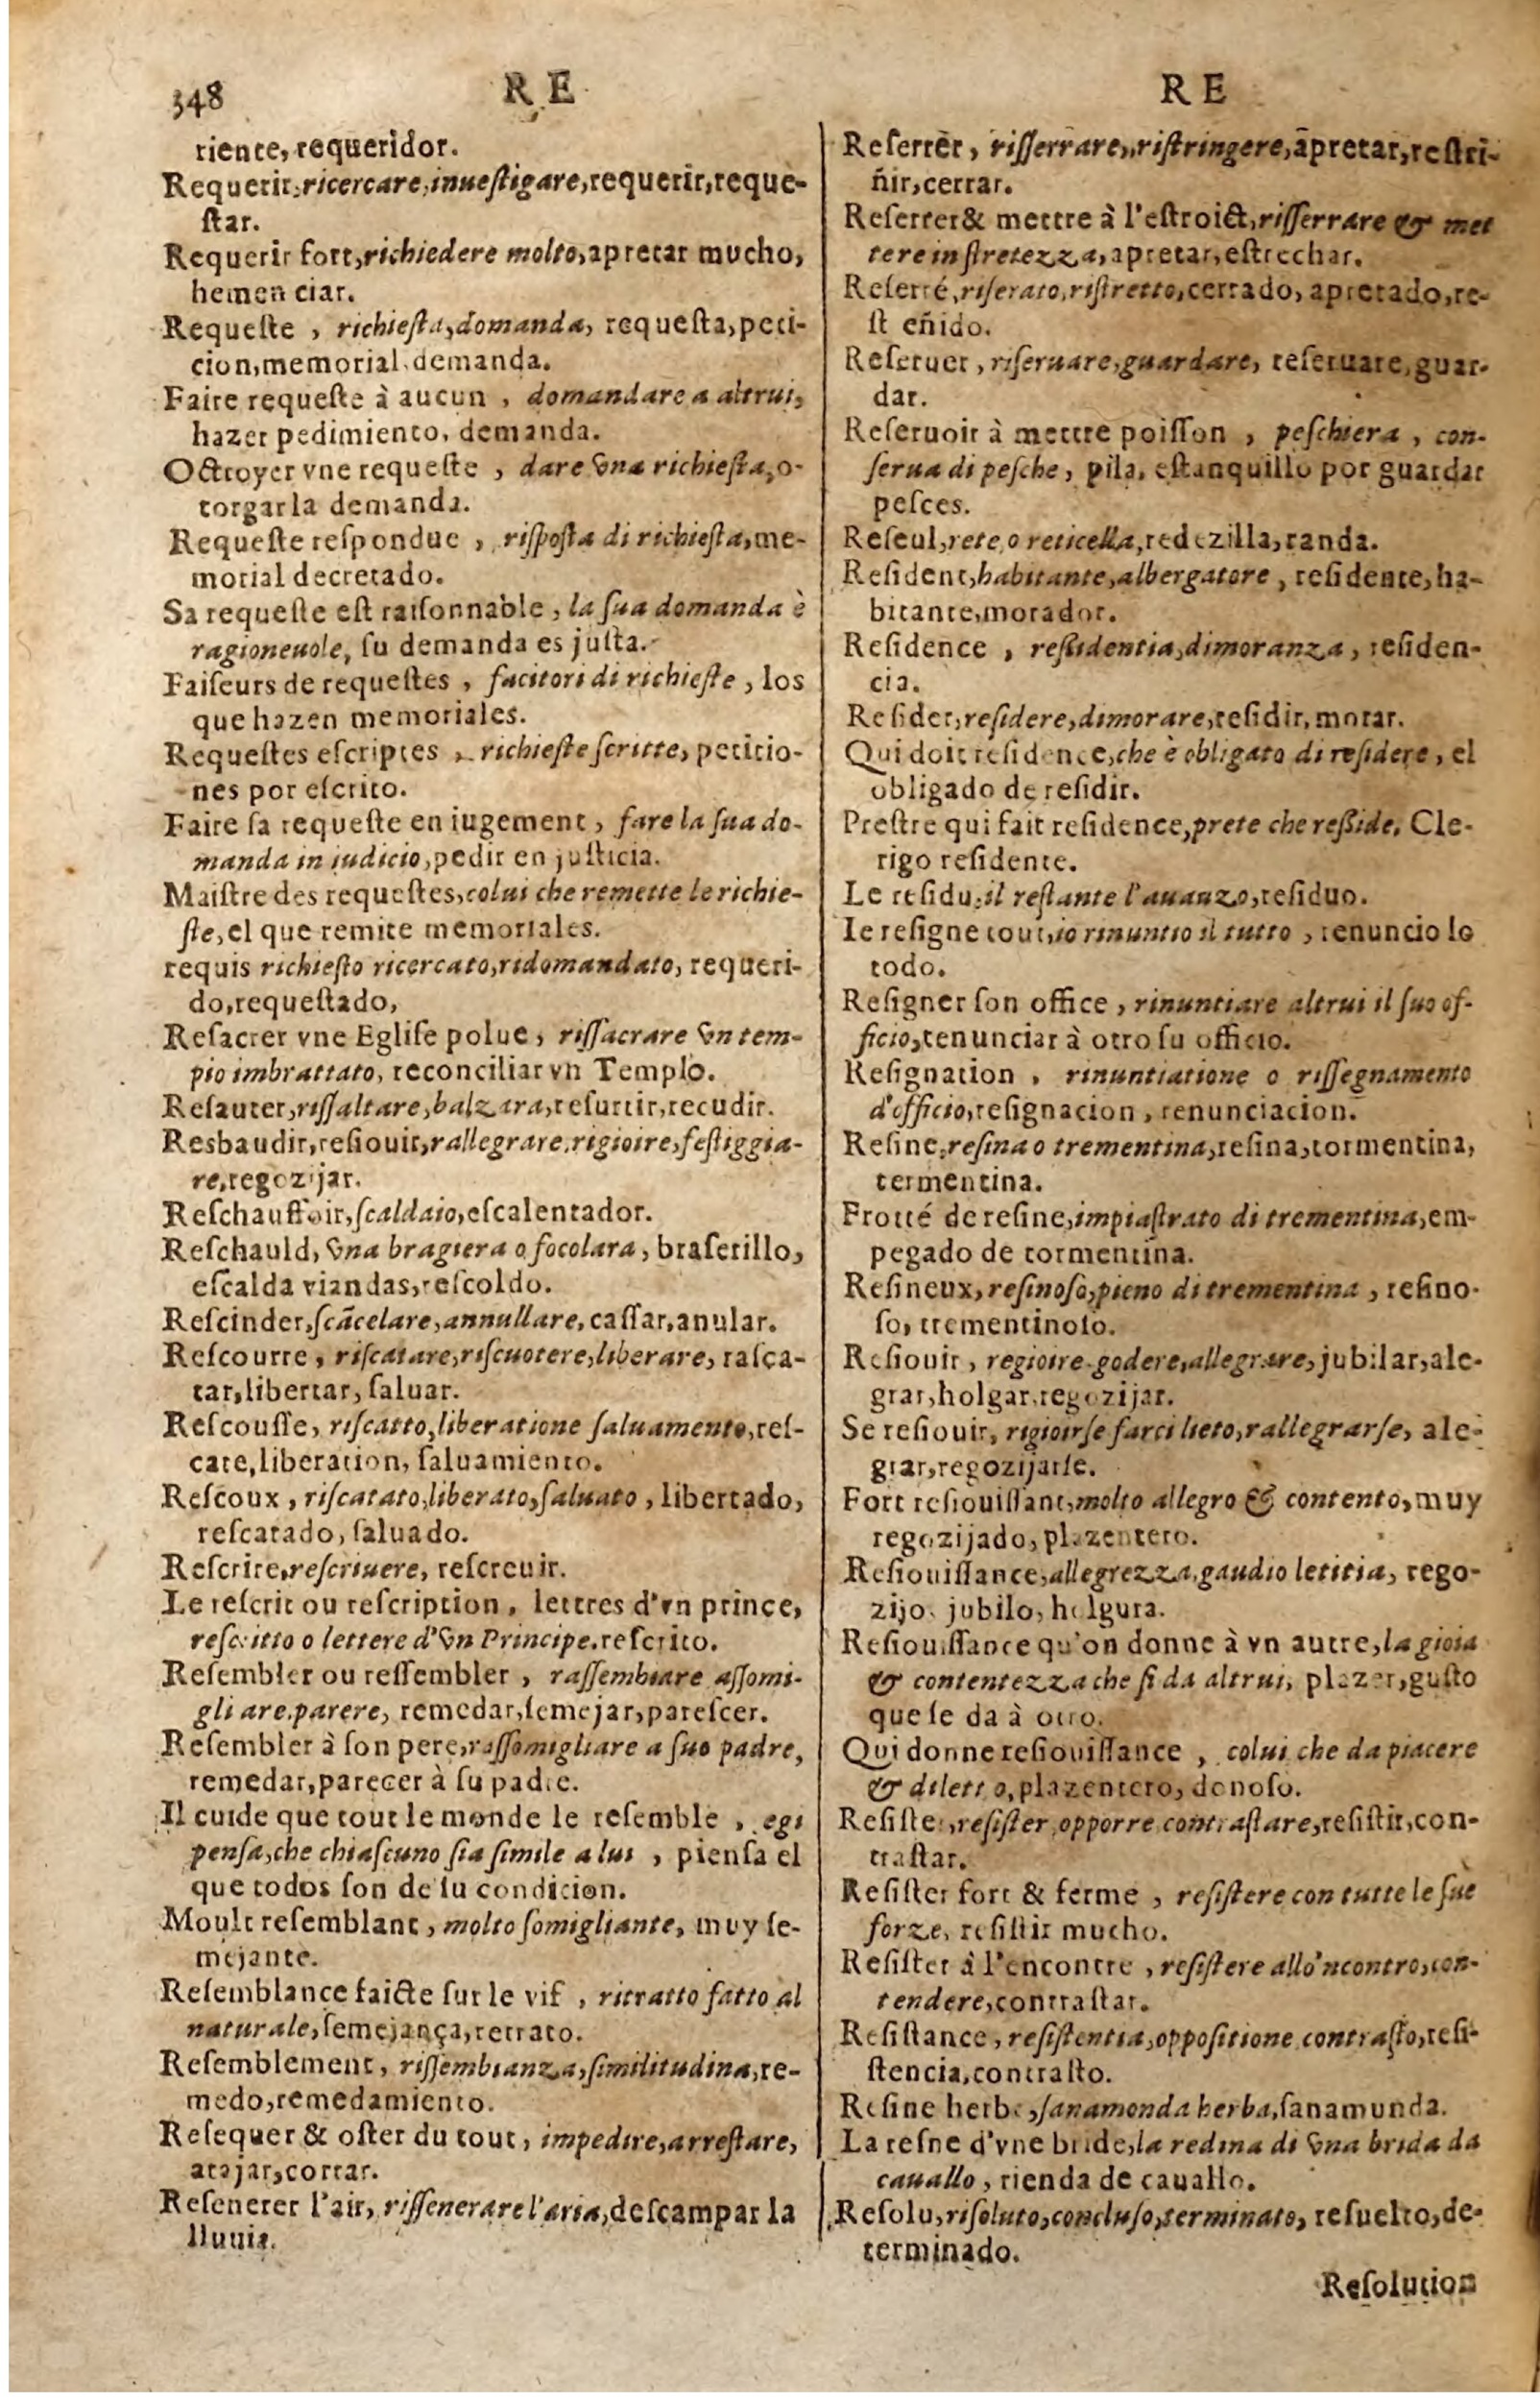 348
RE
riente, requeridor.
Requerir, ricercare, inueſtigare, requerir, reque-
ſtar.
Requerir fort, richiedere molto, apretar mucho,
hemen ciar.
Requeſte , richieſta, domanda, requeſta, peti-
cion, memorial, demanda.
Faire requeſte à aucun , domandare a altrui,
hazer pedimiento, demanda.
Octroyer vne requeſte , dare vna richieſta, o-
torgar la demanda.
Requeſte reſpondue , riſpoſta di richieſta, me-
morial decretado.
Sa requeſte eſt raiſonnable , la ſua domanda è
ragioneuole, ſu demanda es juſta.
Faiſeurs de requeſtes , facitori di richieſte , los
que hazen memoriales.
Requeſtes eſcriptes , richieſte ſcritte, peticio-
nes por eſcrito.
Faire ſa requeſte en iugement , fare la ſua do-
manda in iudicio, pedir en juſticia.
Maiſtre des requeſtes, colui che remette le richie-
ſte, el que remite memoriales.
requis richieſto ricercato, ridomandato, requeri-
do, requeſtado,
Reſacrer vne Egliſe polue , riſſacrare vn tem-
pio imbrattato, reconciliar vn Templo.
Reſauter, riſſaltare, balzara, reſurtir, recudir.
Resbaudir, reſiouir, rallegrare, rigioire, feſtiggia-
re, regozijar.
Reſchauffoir, ſcaldaio, eſcalentador.
Reſchauld, vna bragiera o focolara , braſerillo,
eſcalda viandas, reſcoldo.
Reſcinder, ſcãcelare, annullare, caſſar, anular.
Reſcourre , riſcatare, riſcuotere, liberare, raſca-
tar, libertar, ſaluar.
Reſcouſſe, riſcatto, liberatione ſaluamento, reſ-
cate, liberation, ſaluamiento.
Reſcoux , riſcatato, liberato, ſaluato , libertado,
reſcatado, ſaluado.
Reſcrire, reſcriuere, reſcreuir.
Le reſcrit ou reſcription , lettres d'vn prince,
reſcritto o lettere d'vn Principe. reſcrito.
Reſembler ou reſſembler , raſſembiare aſſomi-
gli are, parere, remedar, ſemejar, pareſcer.
Reſembler à ſon pere, raſſomigliare a ſuo padre,
remedar, parecer à ſu padre.
Il cuide que tout le monde le reſemble , egi
penſa, che chiaſcuno ſia ſimile a lui , pienſa el
que todos ſon de ſu condicion.
Moult reſemblant , molto ſomigliante, muy ſe-
mejante.
Reſemblance faicte ſur le vif , ritratto fatto al
naturale, ſemejança, retrato.
Reſemblement, riſſembianza, ſimilitudina, re-
medo, remedamiento.
Reſequer & oſter du tout , impedire, arreſtare,
atajar, cortar.
Reſenerer l'air, riſſenerare l'aria, deſcampar la
lluuia.
RE
Reſerrer , riſſerrare, riſtringere, apretar, reſtri-
ñir, cerrar.
Reſerrer & mettre à l'eſtroict, riſſerrare & met
tere in ſtretezza, apretar, eſtrechar.
Reſerré, riſerato, riſtretto, cerrado, apretado, re-
ſt eñido.
Reſeruer , riſeruare, guardare, reſeruare, guar-
dar.
Reſeruoir à mettre poiſſon , peſchiera , con-
ſerua di peſche , pila, eſtanquillo por guardar
peſces.
Reſeul, rete o reticella, redezilla, randa.
Reſident, habitante, albergatore , reſidente, ha-
bitante, morador.
Reſidence , reſsidentia, dimoranza , reſiden-
cia.
Reſider, reſidere, dimorare, reſidir, morar.
Qui doit reſidence, che è obligato di reſidere , el
obligado de reſidir.
Preſtre qui fait reſidence, prete che reſside, Cle-
rigo reſidente.
Le reſidu, il reſtante l'auanzo, reſiduo.
Ie reſigne tout, io rinuntio il tutto , renuncio lo
todo.
Reſigner ſon office , rinuntiare altrui il ſuo of-
ficio, renunciar à otro ſu officio.
Reſignation , rinuntiatione o riſſegnamento
d'officio, reſignacion , renunciacion.
Reſine, reſina o trementina, reſina, tormentina,
termentina.
Frotté de reſine, impiaſtrato di trementina, em-
pegado de tormentina.
Reſineux, reſinoſo, pieno di trementina , reſino-
ſo, trementinoſo.
Reſiouir , regioire godere, allegrare, jubilar, ale-
grar, holgar, regozijar.
Se reſiouir, rigioirſe farci lieto, rallegrarſe, ale-
grar, regozijarſe.
Fort reſiouiſſant, molto allegro & contento, muy
regozijado, plazentero.
Reſiouiſſance, allegrezza, gaudio letitia, rego-
zijo, jubilo, holgura.
Reſiouiſſance qu'on donne à vn autre, la gioia
& contentezza che ſi da altrui, plazer, guſto
que ſe da à otro.
Qui donne reſiouiſſance , colui che da piacere
& dilett o, plazentero, donoſo.
Reſiſter, reſiſter opporre contraſtare, reſiſtir, con-
traſtar.
Reſiſter fort & ferme , reſiſtere con tutte le ſue
forze, reſiſtir mucho.
Reſiſter à l'encontre , reſiſtere allo'ncontro, con-
tendere, contraſtar.
Reſiſtance , reſiſtentia, oppoſitione contraſto, reſi-
ſtencia, contraſto.
Reſine herbe, ſanamonda herba, ſanamunda.
La reſne d'vne bride, la redina di vna brida da
cauallo , rienda de cauallo.
Reſolu, riſoluto, concluſo, terminato, reſuelto, de-
terminado.
Reſolution